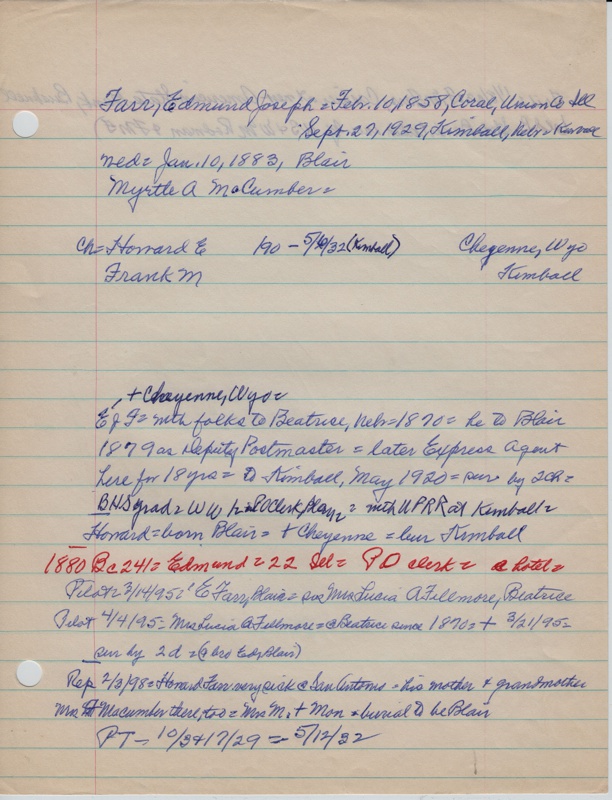 Farr, Edmund Joseph = Feb. 10, 1858, Coral, Union Co Ill
Sept. 27, 1929, Kimball, Neb =
med = Jan. 10, 1883, Blair
Myrtle A McCumber =
Ch = Howard E 190 - 5/ /32 (Kimball) Cheyenne, Wyo
Frank M Kimball
+ Cheyenne, Wyo =
E J F = with folks to Beatrice, Neb = 1870 = he to Blair
1879 as Deputy Postmaster = later Express Agent
here for 18 yrs = to Kimball, May 1920 = sur by 2 ch =
BHS grad = WW = PO Clerk = with UPRR at Kimball =
Howard = born Blair = + Cheyenne = bur Kimball
1880 Bc 241 = Edmund = 22 Ill = PO clerk = @ hotel =
Pilot = 3/14/95 = E Farr, Blair = sis Mrs Lucia A Fillmore, Beatrice
Pilot 4/4/95 = Mrs Lucia A Fillmore = @ Beatrice since 1870 = + 3/21/95 =
sur by 2 d = (@ bro Ed @ Blair)
Rep 2/3/98 = Howard Farr very sick @ San Antonio = his mother & grandmother
Mrs Macumber there, too = Mrs M. + Mon = burial to be Blair
PT - 10/3 & 17/29 = 5/12/32